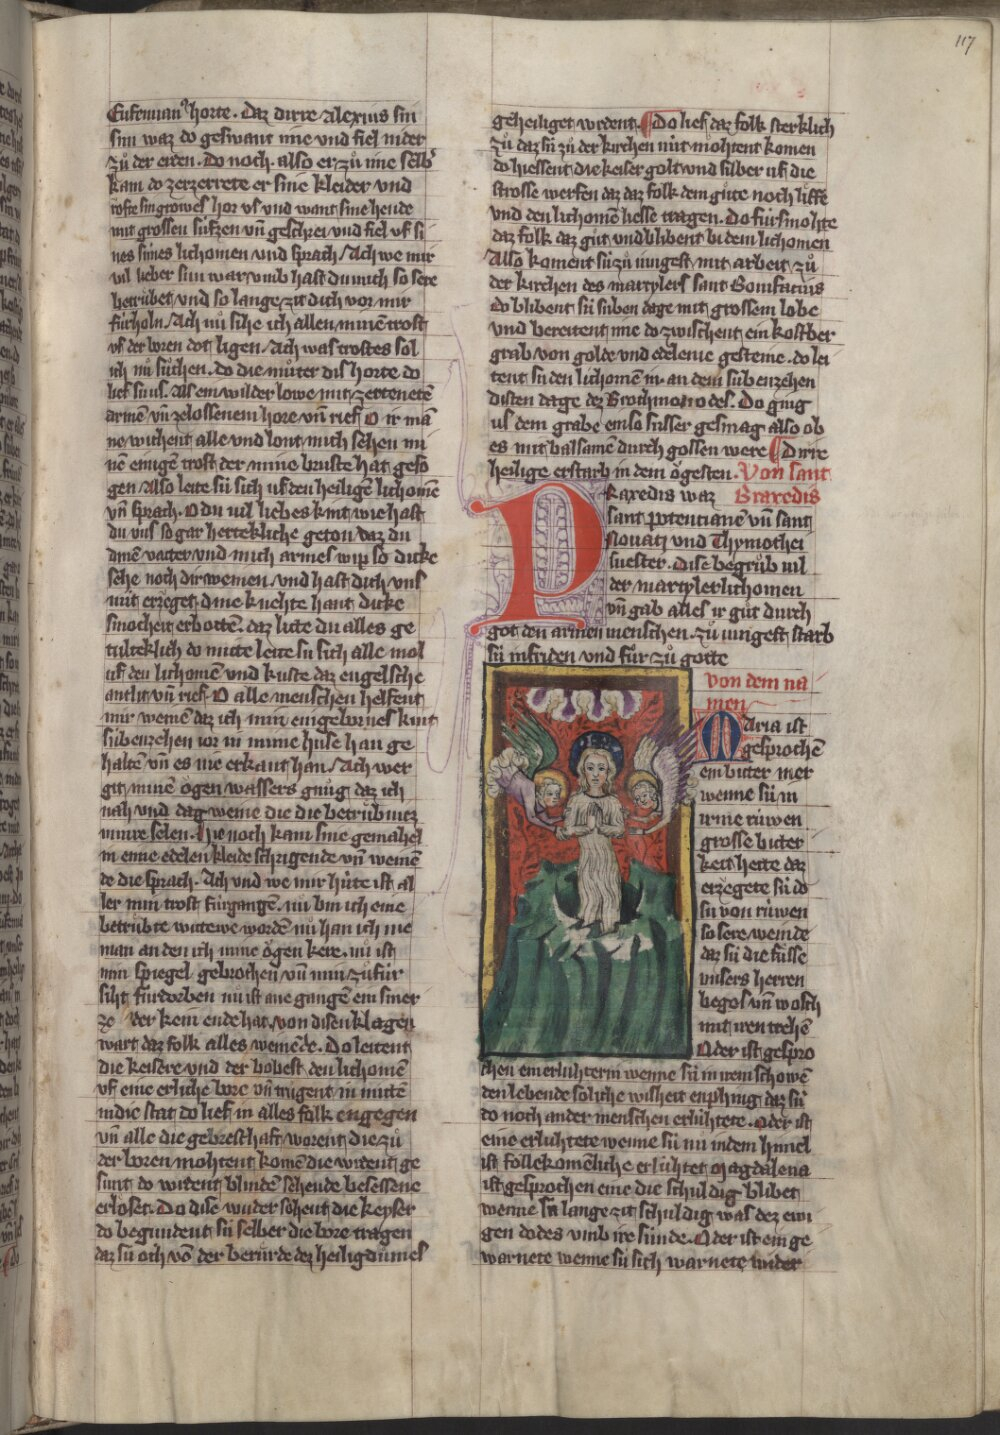 117
Eufemian⁹ horte. Daz dirre Alexius sin
sun waz do geswant ime vnd fiel nider
zů der erden. Do noch. also er zů ime selb͛
kam do zerzerrete er sine kleider vnd
rofte sin growes hor vs vnd want sine hende
mit grossen súfzen vn̄ geschrei vnd fiel vf si
nes sunes lichomen vnd sprach Ach we mir
vil lieber sun war vmb hast du mich so sere
betrůbet vnd so lange zit dich vor mir
fúrholn Ach nů sihe ich allen minē trost
vf der boren dot ligen Ach was trostes sol
ich nů sůchen. do die můter dis horte do
lief sú us. Als ein wilder lowe mit zertentē
armē vn̄ zelossenem hore vn̄ rief O ir mā
ne wichent alle vnd lont mich sehen mi
nē einigē trost der mine bruste hat geso
gen Also leite sú sich uf den heiligē lichomē
vn̄ sprach. O du vil liebes kint wie hast
du vns so gar hertekliche geton daz du
dinē vatter vnd mich armes wip so dicke
sehe noch dir weinen vnd hast dich vns
nút erzeget dine knehte hant dicke
smocheit erbottē. daz litte du alles ge
dulteklich do mitte leite sú sich alle mol
uf den lichomē vnd kuste daz engelsche
antlit vn̄ rief. O alle menschen helfent
mir weinē daz ich min eingebornes kint
súbenzehen ior in mime huse han ge
haltē vn̄ es nie erkant han. Ach wer
git minē ȯgen wassers gnůg daz ich
naht vnd dag weine die die betrůbnúz
minre selen. Hie noch kam sine gemahel
in eime edelen kleide schrigende vn̄ weinē
de die sprach. Ach vnd we mir húte ist al
ler min trost fúrgangē. nů bin ich eine
betrůbte wittewe wordē nů han ich nie
man an den ich mine ȯgen kere. nů ist
min spiegel gebrochen vn̄ min zůfúr
siht fúrdorben nů ist ane gangē ein smer
ze der kein ende hat. von disen klagen
wart daz folk alles weinēde. Do leitent
die keisere vnd der bobest den lichomē
vf eine erliche bore vn̄ trůgent in mittē
in die stat do lief in alles folk engegen
vn̄ alle die gebresthaft worent die zů
der boren mohtent komē die wrdent ge
sunt do wrdent blindē sehende besessene
erloset. Do dise wunder sohent die keyser
do begundent sú selber die bore tragen
daz sú och vō der berúrde dez heiligdůmes
geheiliget wrdent. Do lief daz folk sterklich
zů daz sú zů der kirchen nút mohtent komen
do hiessent die keiser golt vnd silber uf die
strosse werfen daz daz folk dem gůte noch liffe
vnd den lichomē liesse tragen. Do fúrsmohte
daz folk daz gůt vnd blibent bi dem lichomen
Also koment sú zů iungest mit arbeit zů
der kirchen des martylers sant Bonifacius
do blibent sú siben dage mit grossem lobe
vnd bereitent ime do zwischent ein kostber
grab von golde vnd edeleme gesteine. do lei
tent sú den lichomē in. an dem súbenzehen
disten dage dez Brochmonodes. Do ging
us dem grabe ein so sússer gesmag also ob
es mit balsamē durch gossen were Dirre
heilige erstarb in dem ȯgesten. Von sant
Praxedis waz Braxedis
sant potentianē vn̄ sant
Nouati vnd Thymothei
swester. Dise begrůb vil
der martyler lichomen
vn̄ gab alles ir gůt durch
got den armen menschen. zů iungest starb
sú in friden vnd fůr zů gotte
Von dem na
men
Maria ist
gesprochē
ein bitter mer
wenne sú in
irme rúwen
grosse bitter
keit hette daz
erzegete sú do
sú von rúwen
so sere weinde
daz sú die fússe
vnsers herren
begos vn̄ wosch
mit iren trehē
Oder ist gespro
chen ein erlúhterin wenne sú in irem schowē
den lebende soliche wisheit enphing daz sú
do noch ander menschen erlúhtete. Oder ist
eine erlúhtete wenne sú nu in dem himel
ist follekomēliche erlúhtet Magdalena
ist gesprochen eine die schuldig blibet
wenne sú lange zit schuldig was dez ewi
gen dodes vmb ire súnde. Oder ist ein ge
warnete wenne sú sich warnete wider